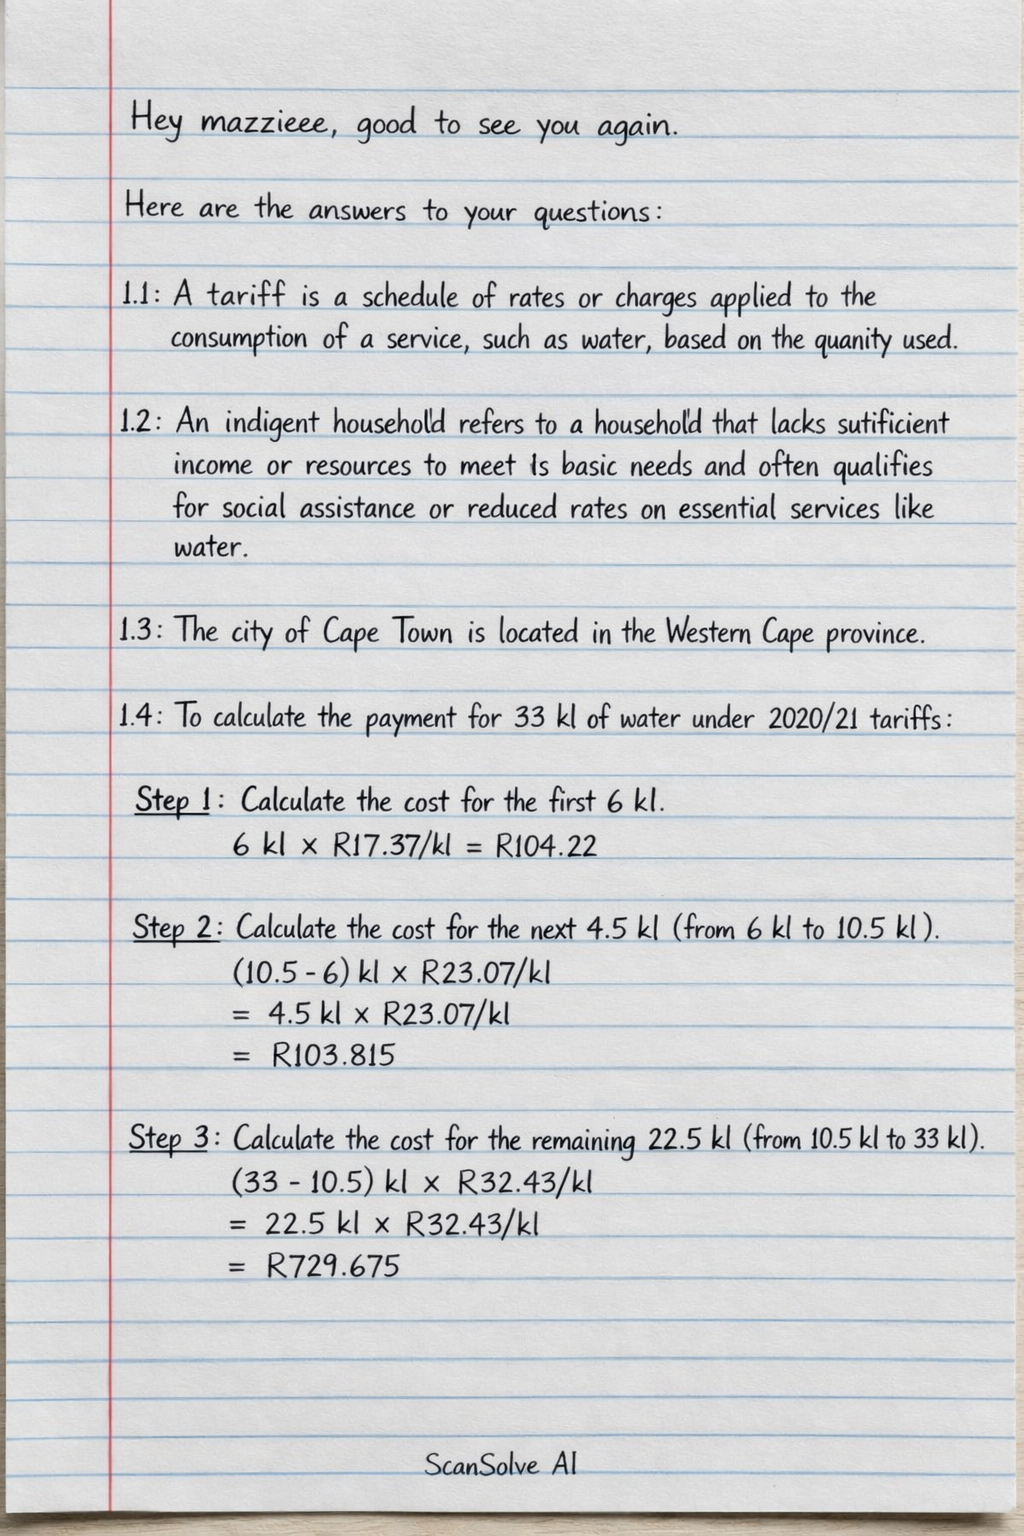 Hey mazzieee, good to see you again.
Here are the answers to your questions:
1.1: A tariff is a schedule of rates or charges applied to the
consumption of a service, such as water, based on the quanity used.
1.2: An indigent household refers to a household that lacks sutificient
income or resources to meet Is basic needs and often qualifies
for social assistance or reduced rates on essential services like
water.
1.3: The city of Cape Town is located in the Western Cape province.
1.4: To calculate the payment for 33 kl of water under 2020/21 tariffs:
Step 1: Calculate the cost for the first 6 kl.
6 kl × R17.37/kl = R104.22
Step 2: Calculate the cost for the next 4.5 kl (from 6 kl to 10.5 kl).
(10.5 - 6) kl × R23.07/kl
= 4.5 kl × R23.07/kl
= R103.815
Step 3: Calculate the cost for the remaining 22.5 kl (from 10.5 kl to 33 kl).
(33 - 10.5) kl × R32.43/kl
= 22.5 kl × R32.43/kl
= R729.675
ScanSolve AI